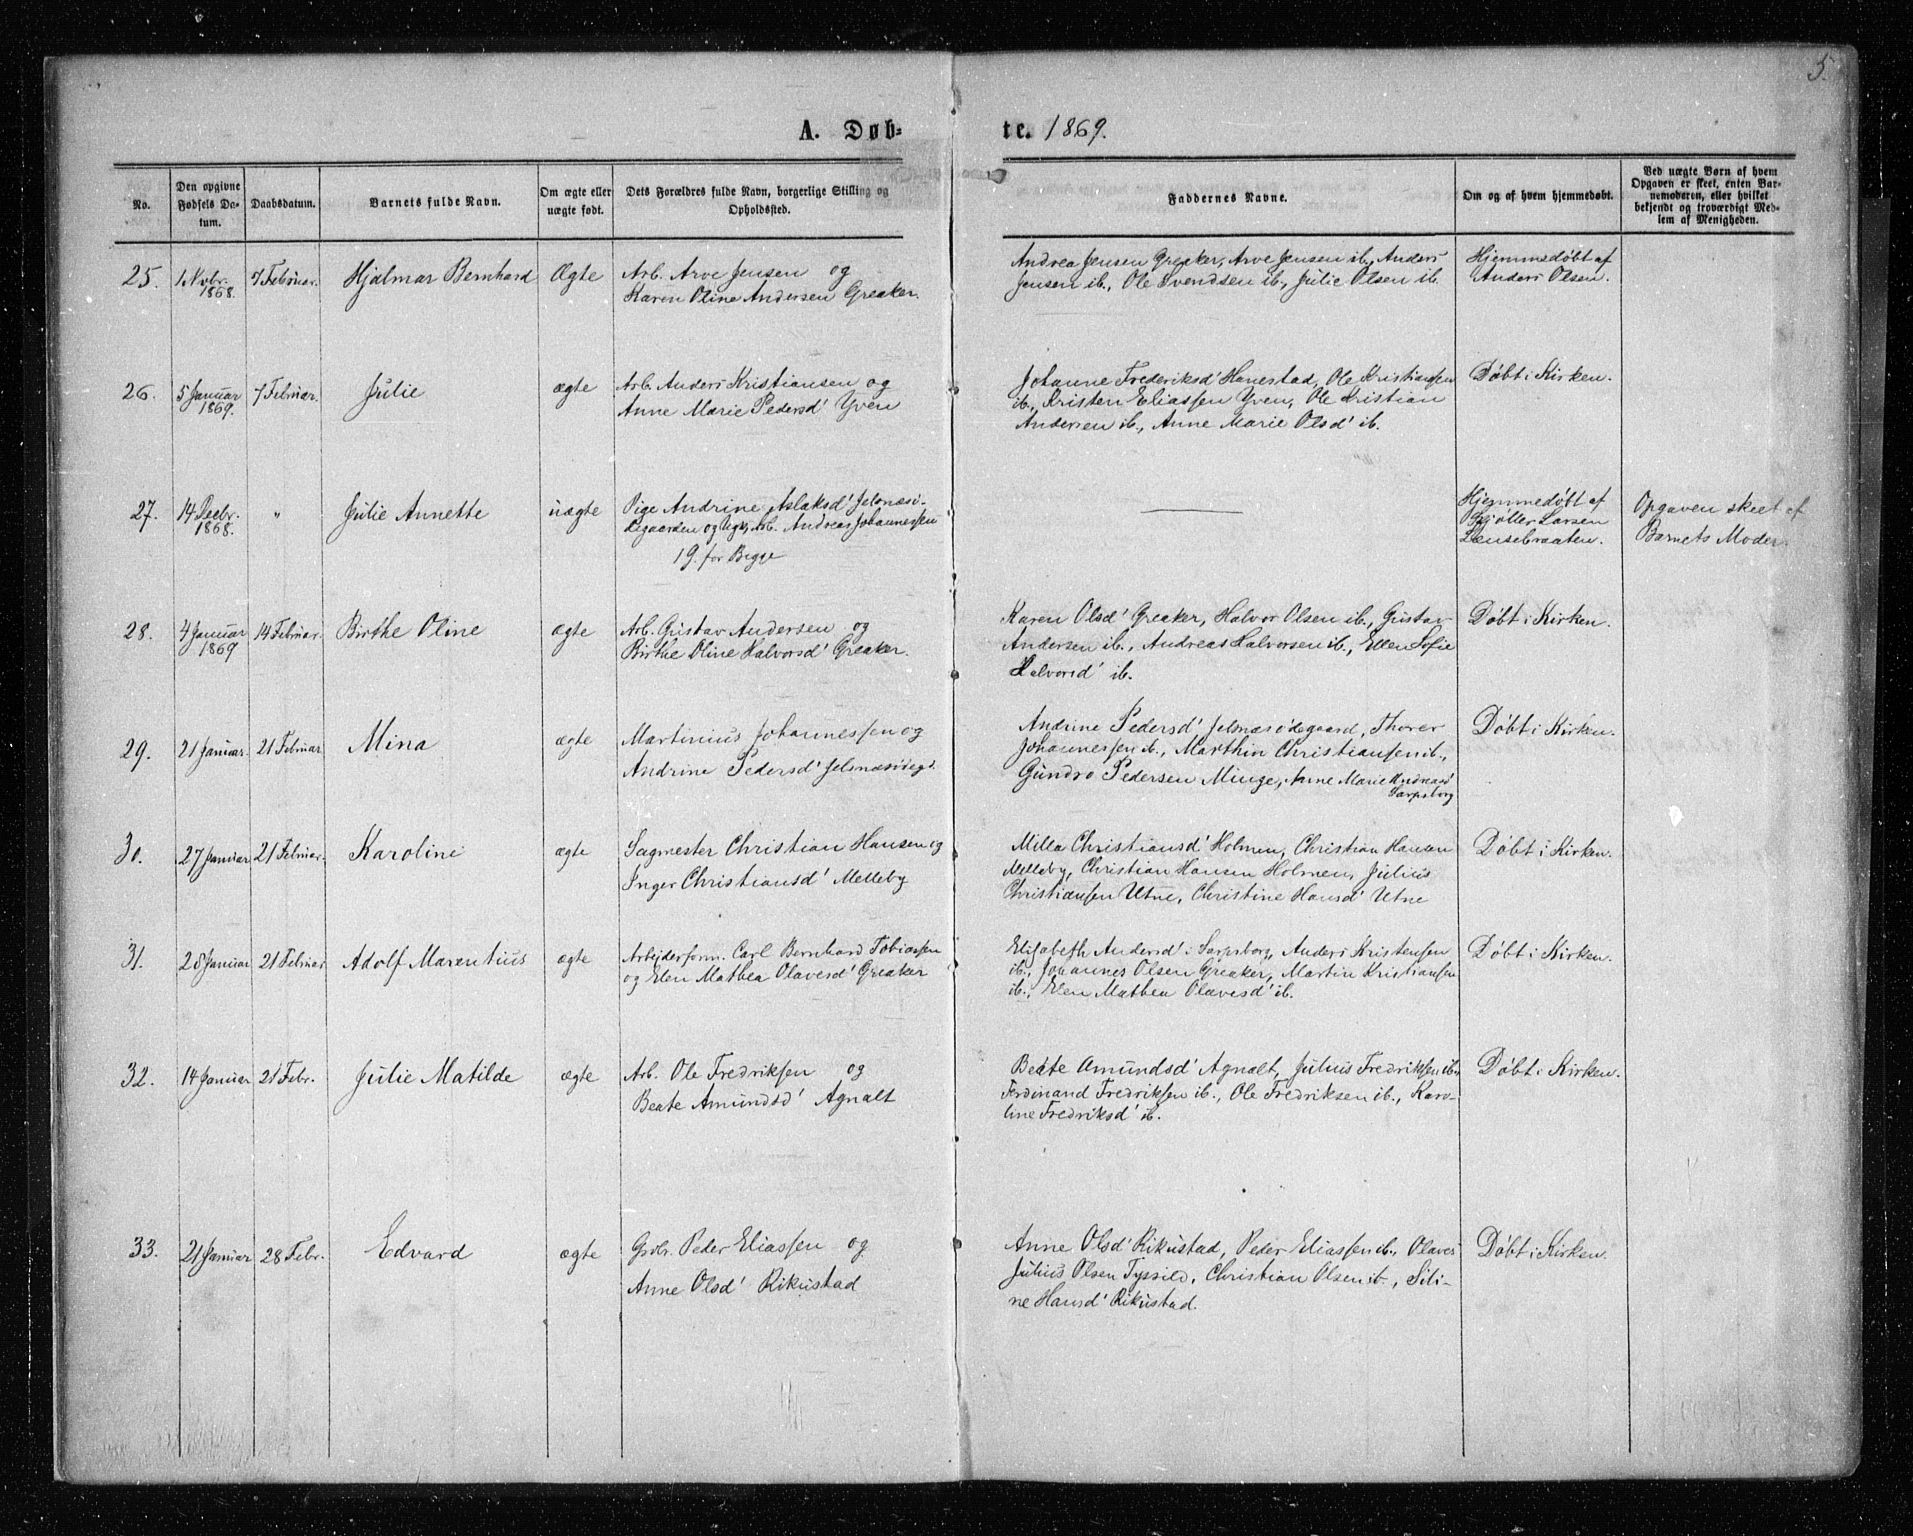 5.
A. Døb- te. 1869.
No.
Den opgivne Fødsels Datum.
Daabsdatum.
Barnets fulde Navn.
Om ægte eller uægte født.
Dets Forældres fulde Navn, borgerlige Stilling og Opholdssted.
Faddernes Navne.
Om og af hvem hjemmedøbt.
Ved uægte Børn af hvem
Opgaven er skeet, enten Bar-
nemoderen, eller hvilket
bekjendt og troværdigt Med-
lem af Menigheden.
25. 1 Novbr. 1868. 7 Februar. Hjalmar Bernhard Ægte
Arb. Arve Jensen og
Karen Oline Andersen Greaker.
Andrea Jensen Greaker, Arve Jensen ib., Anders
Jensen ib., Ole Svendsen ib., Julie Olsen ib.
Hjemmedøbt af
Anders Olsen.
26. 5 Januar 1869. 7 Februar. Julie ægte
Arb. Anders Kristiansen og
Anne Marie Pedersd' Yven
Johanne Frederiksd' Hanestad, Ole Kristiansen
ib., Kristen Eliassen Yven, Ole Kristian
Andersen ib., Anne Marie Olsd' ib.
Døbt i Kirken.
27. 14 Decbr. 1868. " Julie Annette uægte
Pige Andrine Aslaksd' Jelsnæsø-
degaarden og Ugk. Arb. Andreas Johannessen
19. for Begge
Hjemmedøbt af
Larsen
Lensebraaten.
Opgaven skeet af
Barnets Moder.
28. 4 Januar 1869 14 Februar. Birthe Oline ægte
Arb. Gustav Andersen og
Birthe Oline Halvorsd' Greaker.
Karen Olsd' Greaker, Halvor Olsen ib., Gustav
Andersen ib., Andreas Halvorsen ib., Ellen Sofie
Halvorsd' ib.
Døbt i Kirken.
29. 21 Januar. 21 Februar Mina ægte
Martinius Johannessen og
Andrine Pedersd' Jelsnæsødegd.
Andrine Pedersd' Jelsnæsødegaard, Thorer
Johannessen ib., Marthin Christiansen ib.,
Gundro Pedersen Minge, Anne Marie Andreasd'
Sarpsborg
Døbt i Kirken.
30. 27 Januar 21 Februar. Karoline ægte
Sagmester Christian Hansen og
Inger Christiansd' Melleby
Milla Christiansd' Holmen, Christian Hansen
Melleby, Christian Hansen Holmen, Julius
Christiansen Utne, Christine Hansd' Utne
Døbt i Kirken.
31. 28 Januar 21 Februar Adolf Marentius ægte
Arbejderform. Carl Bernhard Tobiassen
og Elen Mathea Olavesd' Greaker
Elisabeth Andersd' i Sarpsborg, Anders Kristensen
ib., Johannes Olsen Greaker, Martin Kristiansen
ib., Elen Mathea Olavesd' ib.
Døbt i Kirken.
32. 14 Januar 21 Febr. Julie Matilde ægte
Arb. Ole Fredriksen og
Beate Amundsd' Agnalt
Beate Amundsd' Agnalt, Julius Fredriksen ib.,
Ferdinand Fredriksen ib., Ole Fredriksen ib., Karo-
line Fredriksd' ib.
Døbt i Kirken.
33. 21 Januar 28 Febr. Edvard ægte
Grdbr. Peder Eliassen og
Anne Olsd' Rikustad
Anne Olsd' Rikustad, Peder Eliassen ib., Olaves
Julius Olsen Tyssild, Christian Olsen ib., Sili-
ne Hansd' Rikustad.
Døbt i Kirken.